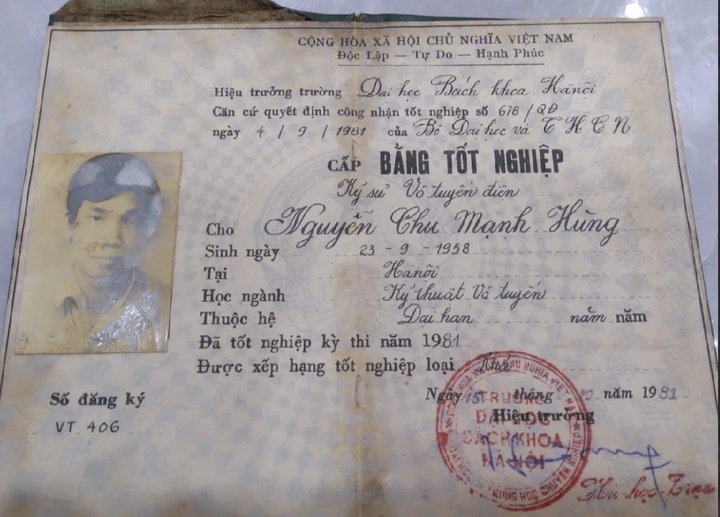 CỘNG HÒA XÃ HỘI CHỦ NGHĨA VIỆT NAM
Độc Lập — Tự Do — Hạnh Phúc
Hiệu trưởng trường Đại học Bách khoa Hà nội
Căn cứ quyết định công nhận tốt nghiệp số 678/QĐ
ngày 4/9/1981 của Bộ Đại học và THCN
CẤP BẰNG TỐT NGHIỆP
Kỹ sư Vô tuyến điện
Cho Nguyễn Chu Mạnh Hùng
Sinh ngày 23-9-1958
Tại Hà nội
Học ngành Kỹ thuật Vô tuyến
Thuộc hệ Dài hạn năm năm
Đã tốt nghiệp kỳ thi năm 1981
Được xếp hạng tốt nghiệp loại
Ngày 15 tháng năm 1981
Số đăng ký
VT 406
Hiệu trưởng
TRƯỜNG
ĐẠI HỌC
BÁCH KHOA
HÀ NỘI